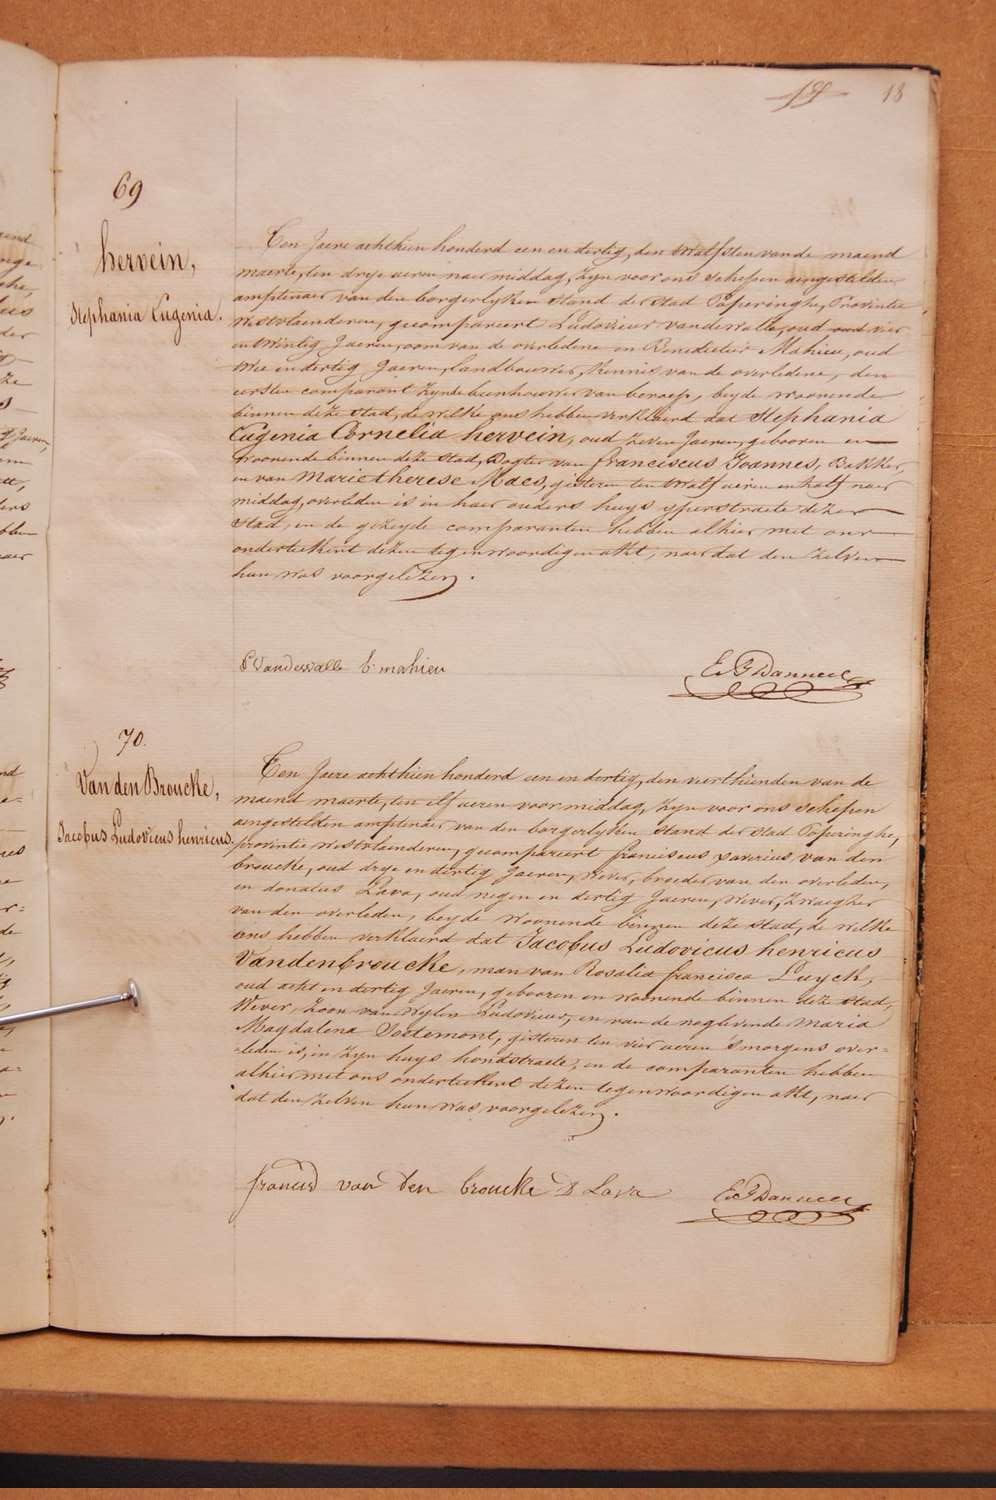 18 18
69
hervein,
Stephania Eugenia.
Ten Jaere achthien honderd een en dertig, den twalfsten van de maend
maerte, ten drye ueren naer middag, zyn voor ons schepen aengestelden
amptenaer van den borgerlyken stand der stad Poperinghe, Provintie
Westvlaenderen, gecompareert Ludovicus vandewalle, oud oud vier
en twintig Jaeren, oom van de overledene en Benedictus Mahieu, oud
twee en dertig Jaeren, Landbouwer, kennis van de overledene, den
eersten comparant zynde beenhouwer van beroep, beyde woonende
binnen deze stad, de welke ons hebben verklaerd dat Stephania
Eugenia Cornelia hervein, oud zeven Jaeren, gebooren en
woonende binnen deze stad, Dogter van franciscus Joannes, Bakker,
en van Marie therese Maes, gisteren ten twalf ueren en half naer
middag, overleden is in haer ouders huys yperstraete dezer
stad, en de gezeyde comparanten hebben alhier met ons
onderteekent dezen tegenwoordigen akt, naer dat den zelven
hun was voorgelezen.
Vandewalle b. mahieu
70.
Van den Broucke,
Jacobus Ludovicus henricus.
Ten Jaere achthien honderd een en dertig, den verthienden van de
maend maerte, ten elf ueren voor middag, zyn voor ons schepen
aengestelden amptenaer van den borgerlyken stand der stad Poperinghe,
provintie westvlaenderen, gecompareert franciscus xaverius van den
broucke, oud drye en dertig Jaeren, wever, broeder van den overleden,
en donatus Lava, oud negen en dertig Jaeren, wever, zwaegher
van den overleden, beyde woonende binnen deze stad, de welke
ons hebben verklaerd dat Jacobus Ludovicus henricus
Vandenbroucke, man van Rosalia francisca Luyck,
oud acht en dertig Jaeren, gebooren en woonende binnen deze stad,
Wever, Zoon van wylen Ludovicus, en van de noglevende maria
Magdalena, gisteren ten vier ueren smorgens over=
=leden is, in zyn huys hondstraete, en de comparanten hebben
alhier met ons onderteekent dezen tegenwoordigen akt, naer
dat den zelven hun was voorgelezen.
francis van den broucke D Lava